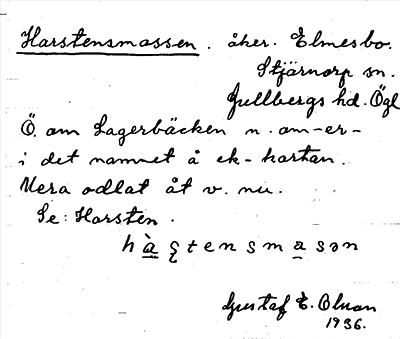 Harstensmossen. åker. Elmesbo.
Stjärnorp sn.
Gullbergs hd. Ögl
Ö. om Lagerbäcken n. om-er-
i det namnet å ek-kartan.
Mera odlat åt v. nu.
Se: Harsten.
Gustaf E. Olson
1936.